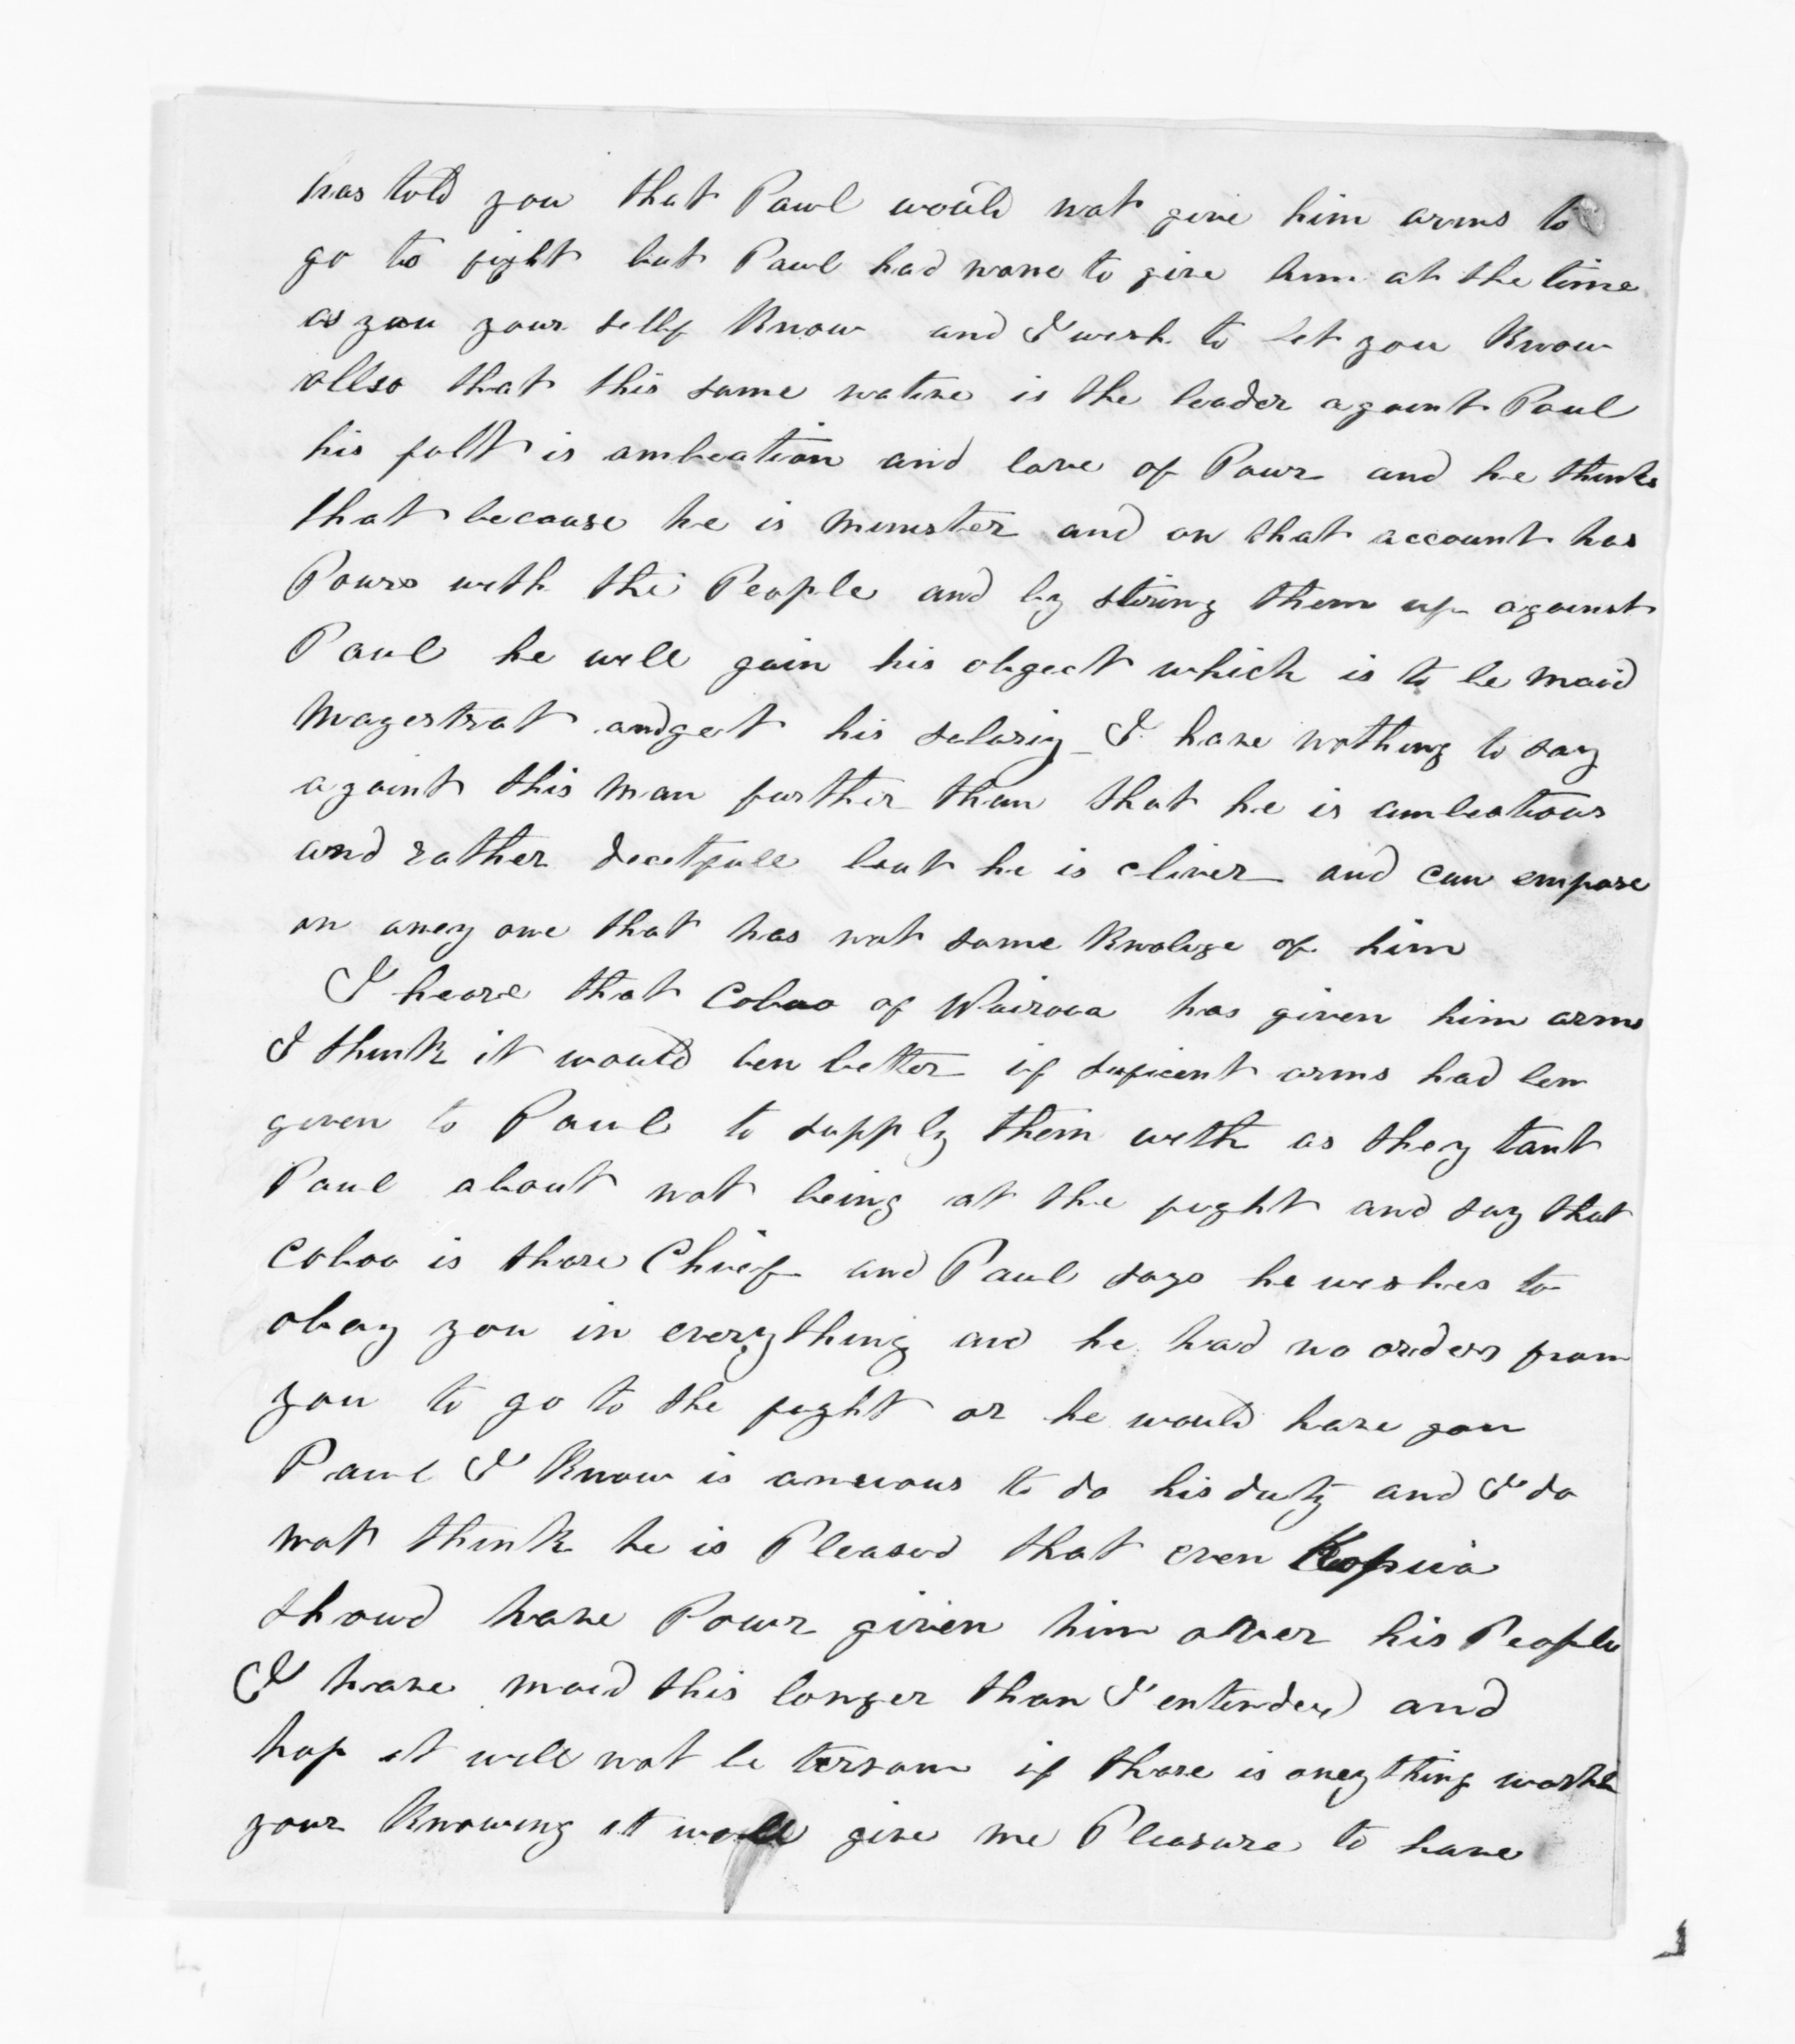 has told you that Paul would not give him arms to
go to fight but Paul had none to give him at the time
as you your selfy Know and I wish to let you Know
allso that this same native is the leader againt Paul
his falt is ambeation and love of Powr and he thinks
that because he is Minister and on that account has
Powrs with the People and by stiring them up against
Paul he will gain his obgect which is to be maid
Magestrat and get his selariy I have nothing to say
againt this man further than that he is ambeatious
and rather decetfull but he is cliver and can empose
on aney one that has not some Knolige of him
I heare that Coboo of Wairoaa has given him arms
I think it would ben better if suficent arms had ben
given to Paul to supply them with as they tant
Paul about not being at the fught and say that
Coboo is thare Chief and Paul says he weshes to
obay you in everything and he had no orders from
you to go to the fught or he would have gon
Paul I Know is anxious to do his duty and I do
not think he is Pleased that even Kopuia
shoud have Powr given him over his People
I have maid this longer than I entended and
hop it will not be tersom if thare is aneything worthe
your Knowing it will give me Pleasure to have